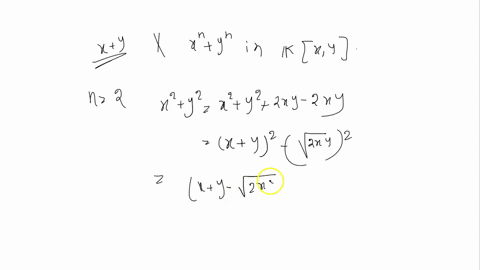 x+y ∤ xⁿ+yⁿ in K[x,y].
n=2 x²+y² = x²+y²+2xy-2xy
= (x+y)² - (√2xy)²
= (x+y-√2x